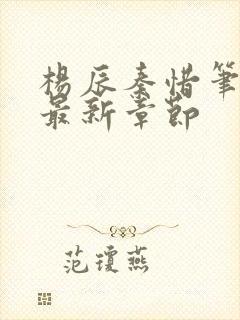 楊辰秦惜筆
最新章節
范瓊燕